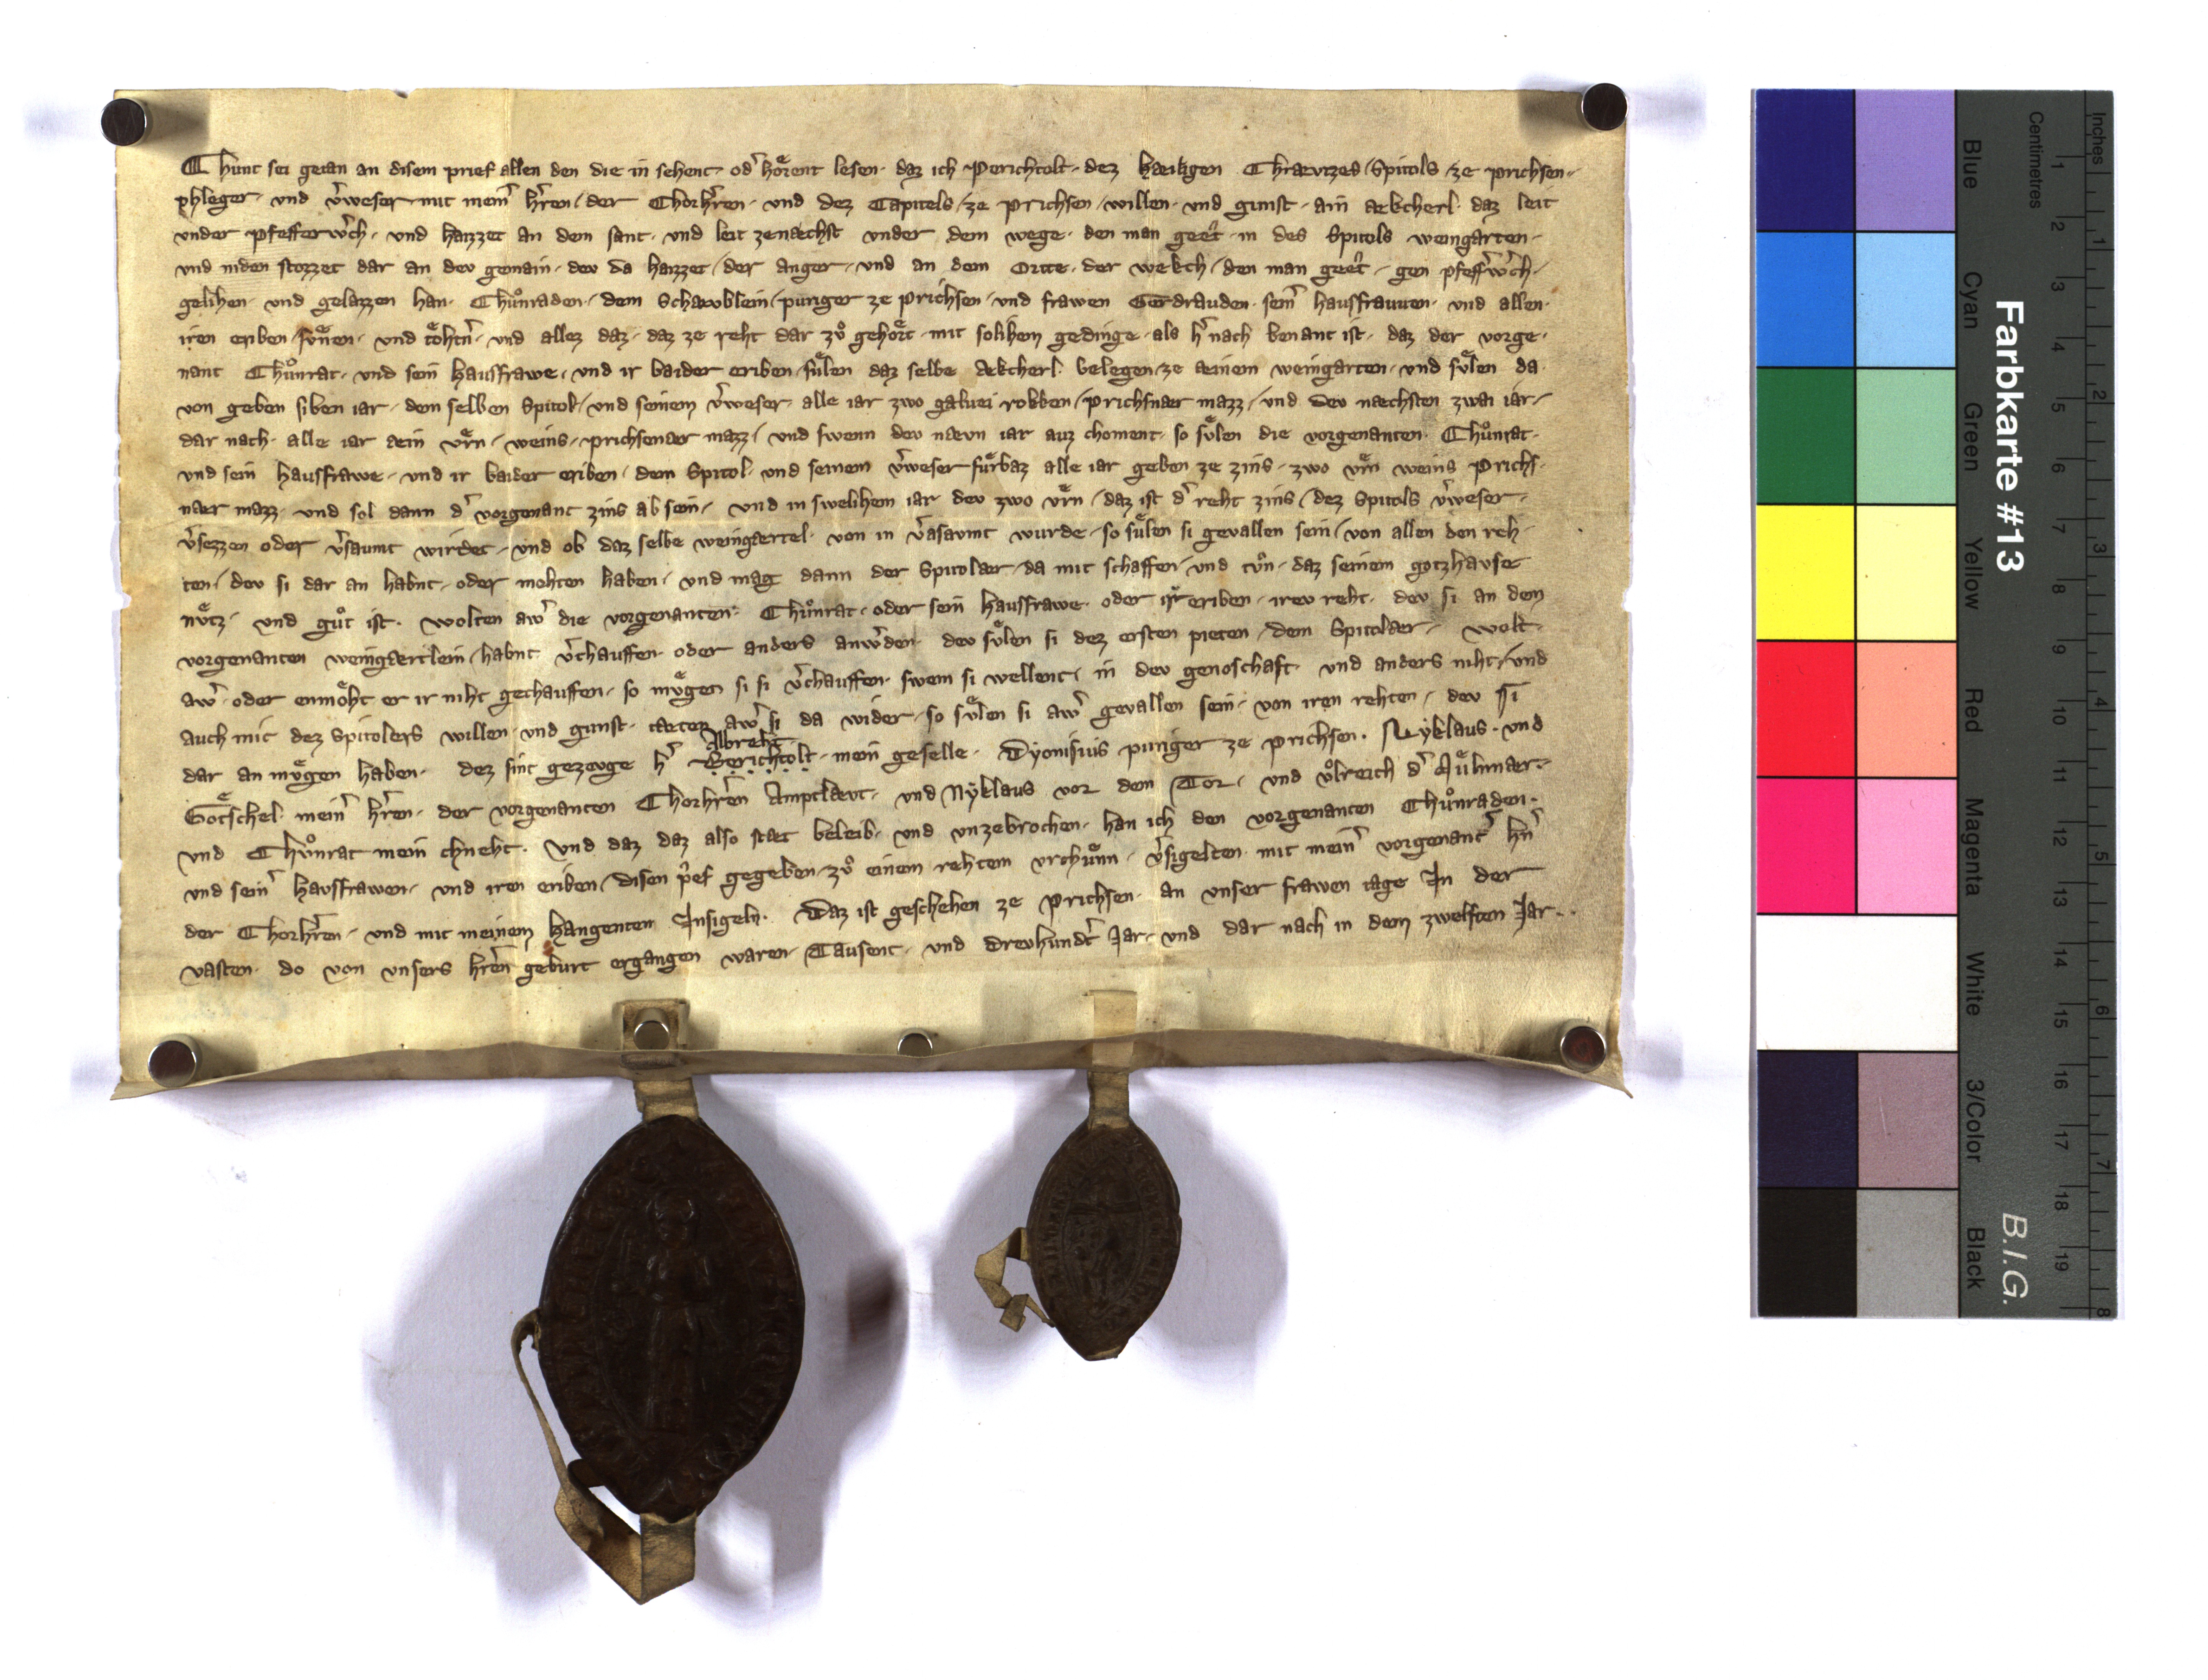 Chunt sei getan an disem prief allen den die in sehent· od᷒ hoͤrent lesen· daz ich Perichtolt· dez haeiligen Chraevtzes Spitols ze prichsen·
phleger· vnd v᷒weser mit mein᷒ h᷒ren der Chorh᷒ren· vnd dez Capitels ze prichsen willen· vnd gunst· ain aekcherl· daz leit
vnder pfefferw᷒ch· vnd haizzet an dem sant· vnd leit zenaechst vnder dem wege· den man geet· in des Spitols weingarten·
vnd niden stozzet dar an dev gemain· dev da haizzet der anger· vnd an dem Ortte· der wekch den man geet· gen pfeff᷒w᷒ch·
gelihen· vnd gelazzen han· Chuͦnraden· dem Schaevblein puriger ze prichsen vnd frawen Gerdrauden· sein᷒ hausfrauuen· vnd allen·
iren eriben suͤnen· vnd toͤhtn᷒· vnd allez daz· daz ze reht dar zuͦ gehoͤrt· mit solihem gedinge· als h᷒ nach benant ist· daz der vorge·
nant Chuͦnrat· vnd sein hausfrawe· vnd ir baider eriben suͤlen daz selbe aekcherl· belegen ze aeinem weingarten· vnd suͤlen da
von geben siben iar· dem selben Spitol· vnd seinem v᷒weser· alle iar zwo galuei rokken prichsnaer mazz· vnd dev naechsten zwai iar·
dar nach· alle iar aein vͤrn· weins· prichsenaer mazz· vnd swenn dev naevn iar auz choment· so suͤlen die vorgenanten· Chuͦnrat·
vnd sein hausfrawe· vnd ir baider eriben· dem Spitol· vnd seinem v᷒weser fuͤrbaz alle iar geben ze zins· zwo vͤrn weins Prichs·
naer mazz· vnd sol dann d᷒ vorgenant zins ab sein· vnd in swelihem iar dev zwo vͤrn daz ist d᷒ reht zins dez Spitols v᷒weser·
v᷒sezzen oder v᷒saumt wirdet· vnd ob daz selbe weingaertel· von in v᷒asaumt wurde· so suͤlen si gevallen sein von allen den reh·
ten dev si dar an habnt· oder mohten haben· vnd mag dann der Spitolaer da mit schaffen vnd tuͦn· daz seinem gotzhavse
nuͤtz· vnd guͦt ist· wolten aw᷒ die vorgenanten· Chuͦnrat· oder sein hausfrawe· oder ir eriben· irev reht· dev si an dem
vorgenanten weingaertlein habnt v᷒chauffen· oder anders anw᷒den· dev suͤlen si dez ersten pieten dem Spitolaer· wolt·
aw᷒· oder enmoͤht er ir niht gechauffen· so muͤgen si si v᷒chauffen· swem si wellent· in dev genoschaft· vnd anders niht· vnd
auch mit dez Spitolers willen· vnd gunst· taeten aw᷒ si da wider· so suͤlen si aw᷒ gevallen sein· von iren rehten· dev si
dar an muͤgen haben· dez sint gezevge h᷒ Albreht Berichtolt· mein geselle· Dyonisius puriger ze prichsen· Nyklaus· vnd
Goͤtschel· mein᷒ h᷒ren· der vorgenanten Chorh᷒ren Amptlaevt· vnd Nyklaus vor dem Tor· vnd vͦlreich d᷒ Muͤlnaer·
vnd Chuͦnrat mein chneht· Vnd daz daz also staet beleib· vnd vnzebrochen· han ich den vorgenanten Chuͦnraden·
vnd sein᷒ hausfrawen· vnd iren eriben disen p᷒ef gegeben zuͦ einem rehtem vrchuͤnn· v᷒sigelten mit mein᷒ vorgenant᷒ hn᷒
der Chorh᷒ren· vnd mit meinem hangenten Insigeln· Daz ist geschehen ze prichsen· an vnser frawen tage In der
vasten· do von vnsers h᷒ren geburt ergangen waren· Tausent· vnd drevhundt᷒ Jar· vnd dar nach in dem zwelften Jar··
Farbkarte #13
B.I.G.
Centimetres
Inches
Blue
Cyan
Green
Yellow
Red
Magenta
White
3/Color
Black
1 2 3 4 5 6 7 8 9 10 11 12 13 14 15 16 17 18 19
1 2 3 4 5 6 7 8